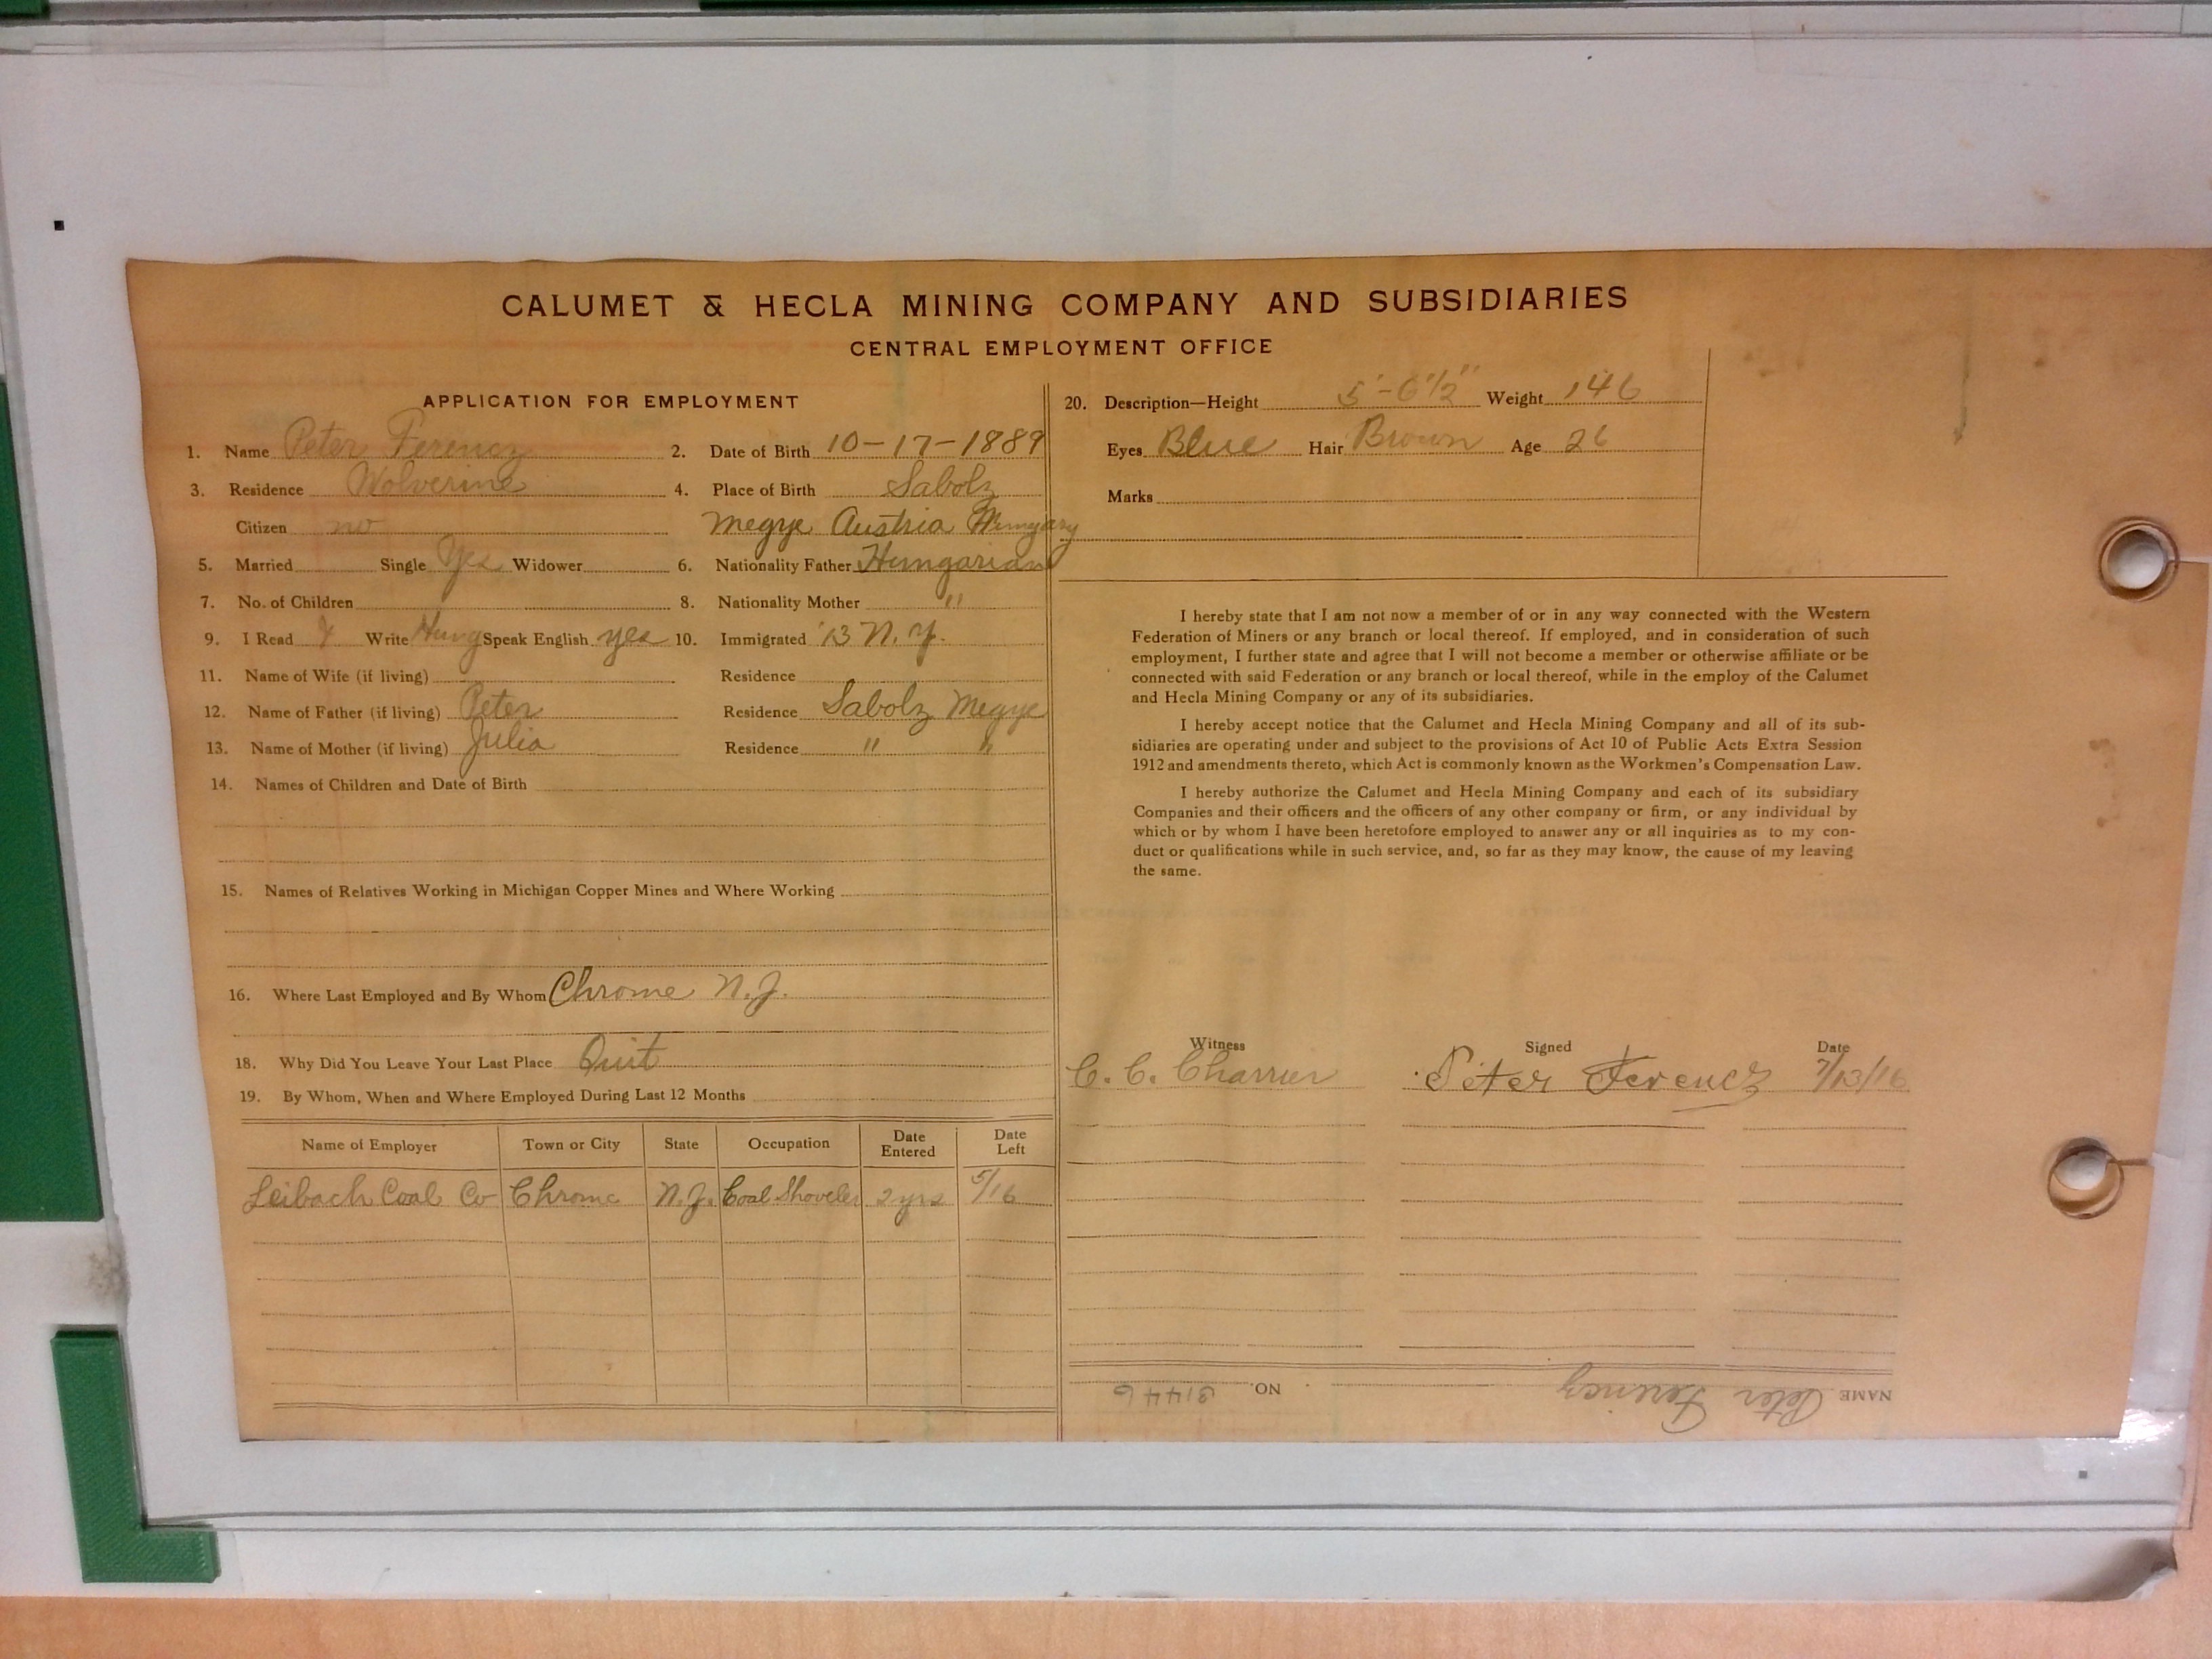 CALUMET & HECLA MINING COMPANY AND SUBSIDIARIES
CENTRAL EMPLOYMENT OFFICE
APPLICATION FOR EMPLOYMENT
1. Name Peter Ferencz 2. Date of Birth 10-17-1889
3. Residence Wolverine 4. Place of Birth Sabolz
Citizen no Megye Austria Hungary
5. Married Single Yes Widower 6. Nationality Father Hungarian
7. No. of Children 8. Nationality Mother "
9. I Read & Write Hung Speak English yes 10. Immigrated '13 N.Y.
11. Name of Wife (if living) Residence
12. Name of Father (if living) Peter Residence Sabolz Megye
13. Name of Mother (if living) Julia Residence " "
14. Names of Children and Date of Birth
15. Names of Relatives Working in Michigan Copper Mines and Where Working
16. Where Last Employed and By Whom Chrome N.J.
18. Why Did You Leave Your Last Place Quit
19. By Whom, When and Where Employed During Last 12 Months
Name of Employer Town or City State Occupation Date Entered Date Left
Leibach Coal Co Chrome N.J. Coal Shoveler 2 yrs 5/16
20. Description—Height 5'-6½" Weight 146
Eyes Blue Hair Brown Age 26
Marks
I hereby state that I am not now a member of or in any way connected with the Western
Federation of Miners or any branch or local thereof. If employed, and in consideration of such
employment, I further state and agree that I will not become a member or otherwise affiliate or be
connected with said Federation or any branch or local thereof, while in the employ of the Calumet
and Hecla Mining Company or any of its subsidiaries.
I hereby accept notice that the Calumet and Hecla Mining Company and all of its sub-
sidiaries are operating under and subject to the provisions of Act 10 of Public Acts Extra Session
1912 and amendments thereto, which Act is commonly known as the Workmen's Compensation Law.
I hereby authorize the Calumet and Hecla Mining Company and each of its subsidiary
Companies and their officers and the officers of any other company or firm, or any individual by
which or by whom I have been heretofore employed to answer any or all inquiries as to my con-
duct or qualifications while in such service, and, so far as they may know, the cause of my leaving
the same.
Witness Signed Date
C. C. Charrier Peter Ferencz 7/13/16
NAME Peter Ferencz NO. 31446